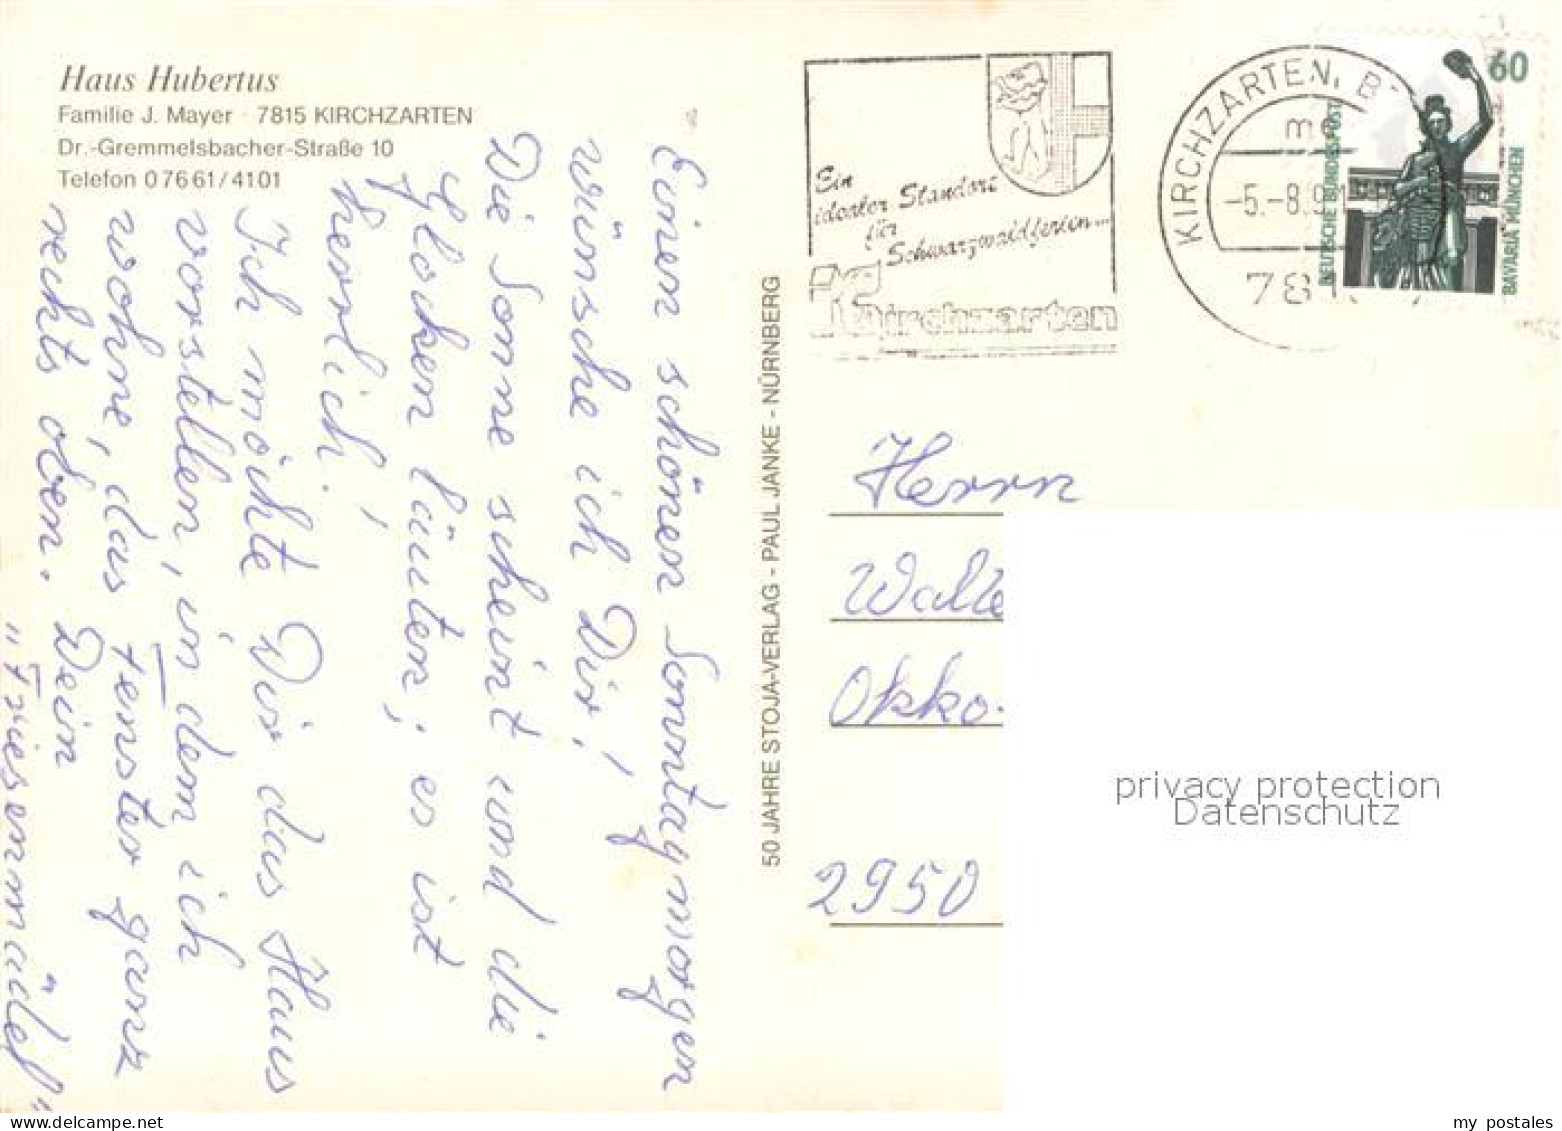 Haus Hubertus
Familie J. Mayer · 7815 KIRCHZARTEN
Dr.-Gremmelsbacher-Straße 10
Telefon 0 76 61 / 41 01
Einen schönen Sonntagmorgen
wünsche ich Dir!
Die Sonne scheint und die
Glocken läuten; es ist
herrlich!
Ich möchte Dir das Haus
vorstellen, in dem ich
wohne, das Fenster ganz
rechts oben. Dein
"Friesenmädel"
50 JAHRE STOJA-VERLAG - PAUL JANKE - NÜRNBERG
Ein
idealer Standort
für
Schwarzwaldferien...
Kirchzarten
KIRCHZARTEN, B
-5.-8.9
78
60
DEUTSCHE BUNDESPOST
BAVARIA MÜNCHEN
Herrn
Walte
Okko
2950
privacy protection
Datenschutz
my postales